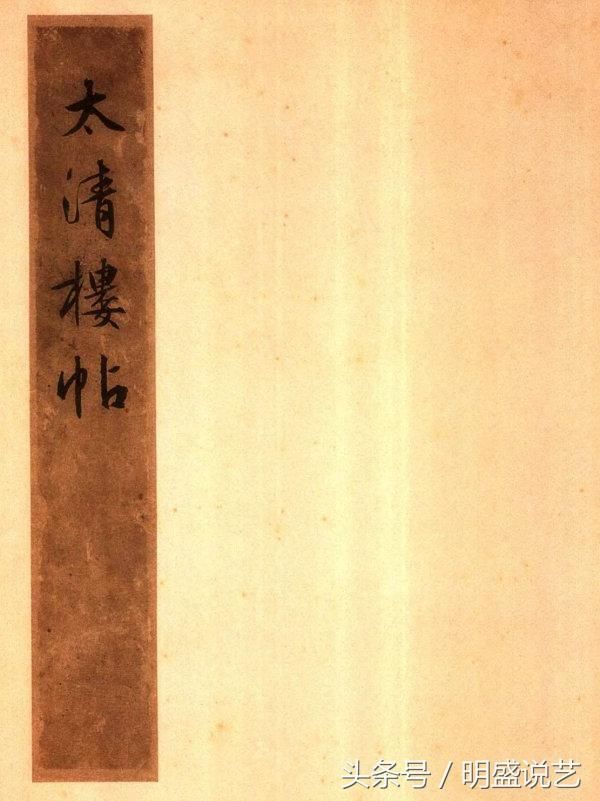 太清樓帖
头条号 / 明盛说艺